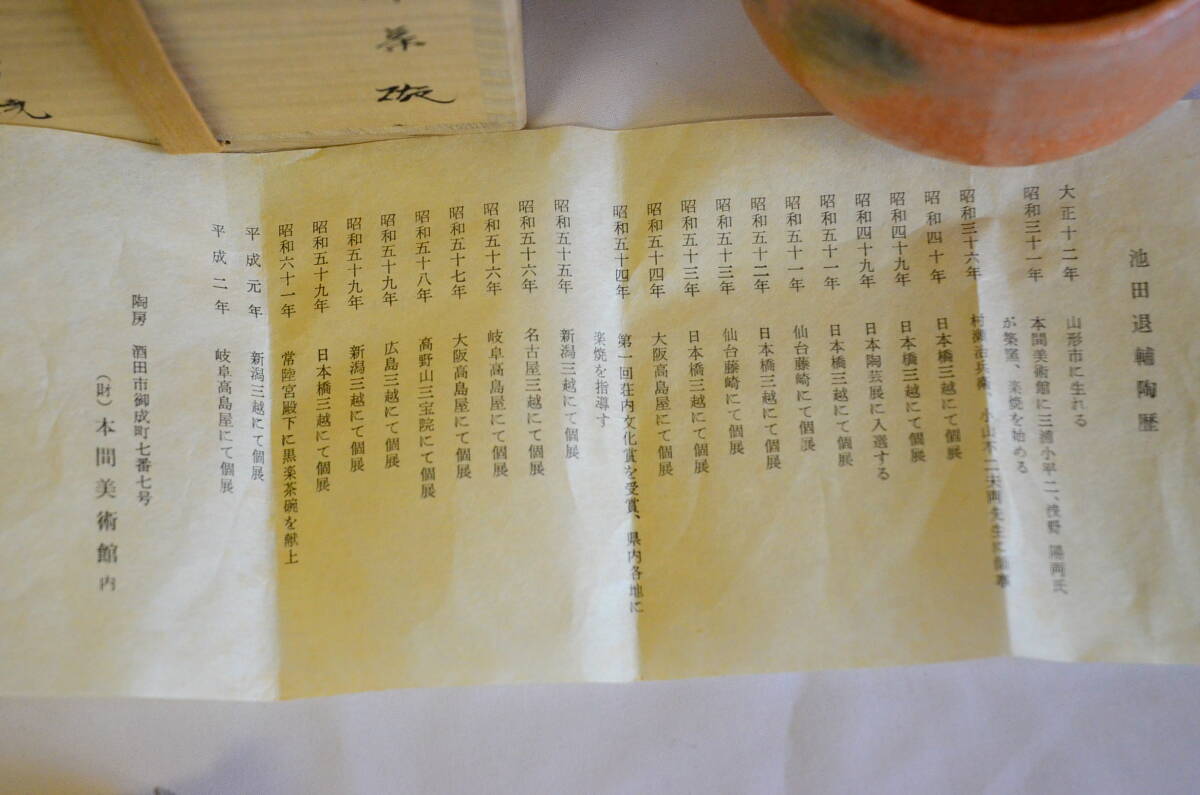 池田退輔陶歴
大正十二年 山形市に生れる
昭和三十一年 本間美術館に三浦小平二、浅野 陽両氏
が築窯、楽焼を始める
昭和三十六年 村瀬治兵衛、小山不二夫両先生に師事
昭和四十年 日本橋三越にて個展
昭和四十九年 日本橋三越にて個展
昭和四十九年 日本陶芸展に入選する
昭和五十一年 日本橋三越にて個展
昭和五十一年 仙台藤崎にて個展
昭和五十二年 日本橋三越にて個展
昭和五十三年 仙台藤崎にて個展
昭和五十三年 日本橋三越にて個展
昭和五十四年 大阪高島屋にて個展
昭和五十四年 第一回荘内文化賞を受賞、県内各地に
楽焼を指導す
昭和五十五年 新潟三越にて個展
昭和五十六年 名古屋三越にて個展
昭和五十六年 岐阜高島屋にて個展
昭和五十七年 大阪高島屋にて個展
昭和五十八年 高野山三宝院にて個展
昭和五十九年 広島三越にて個展
昭和五十九年 新潟三越にて個展
昭和五十九年 日本橋三越にて個展
昭和六十一年 常陸宮殿下に黒楽茶碗を献上
平成元年 新潟三越にて個展
平成二年 岐阜高島屋にて個展
陶房 酒田市御成町七番七号
(財)本間美術館内
茶碗